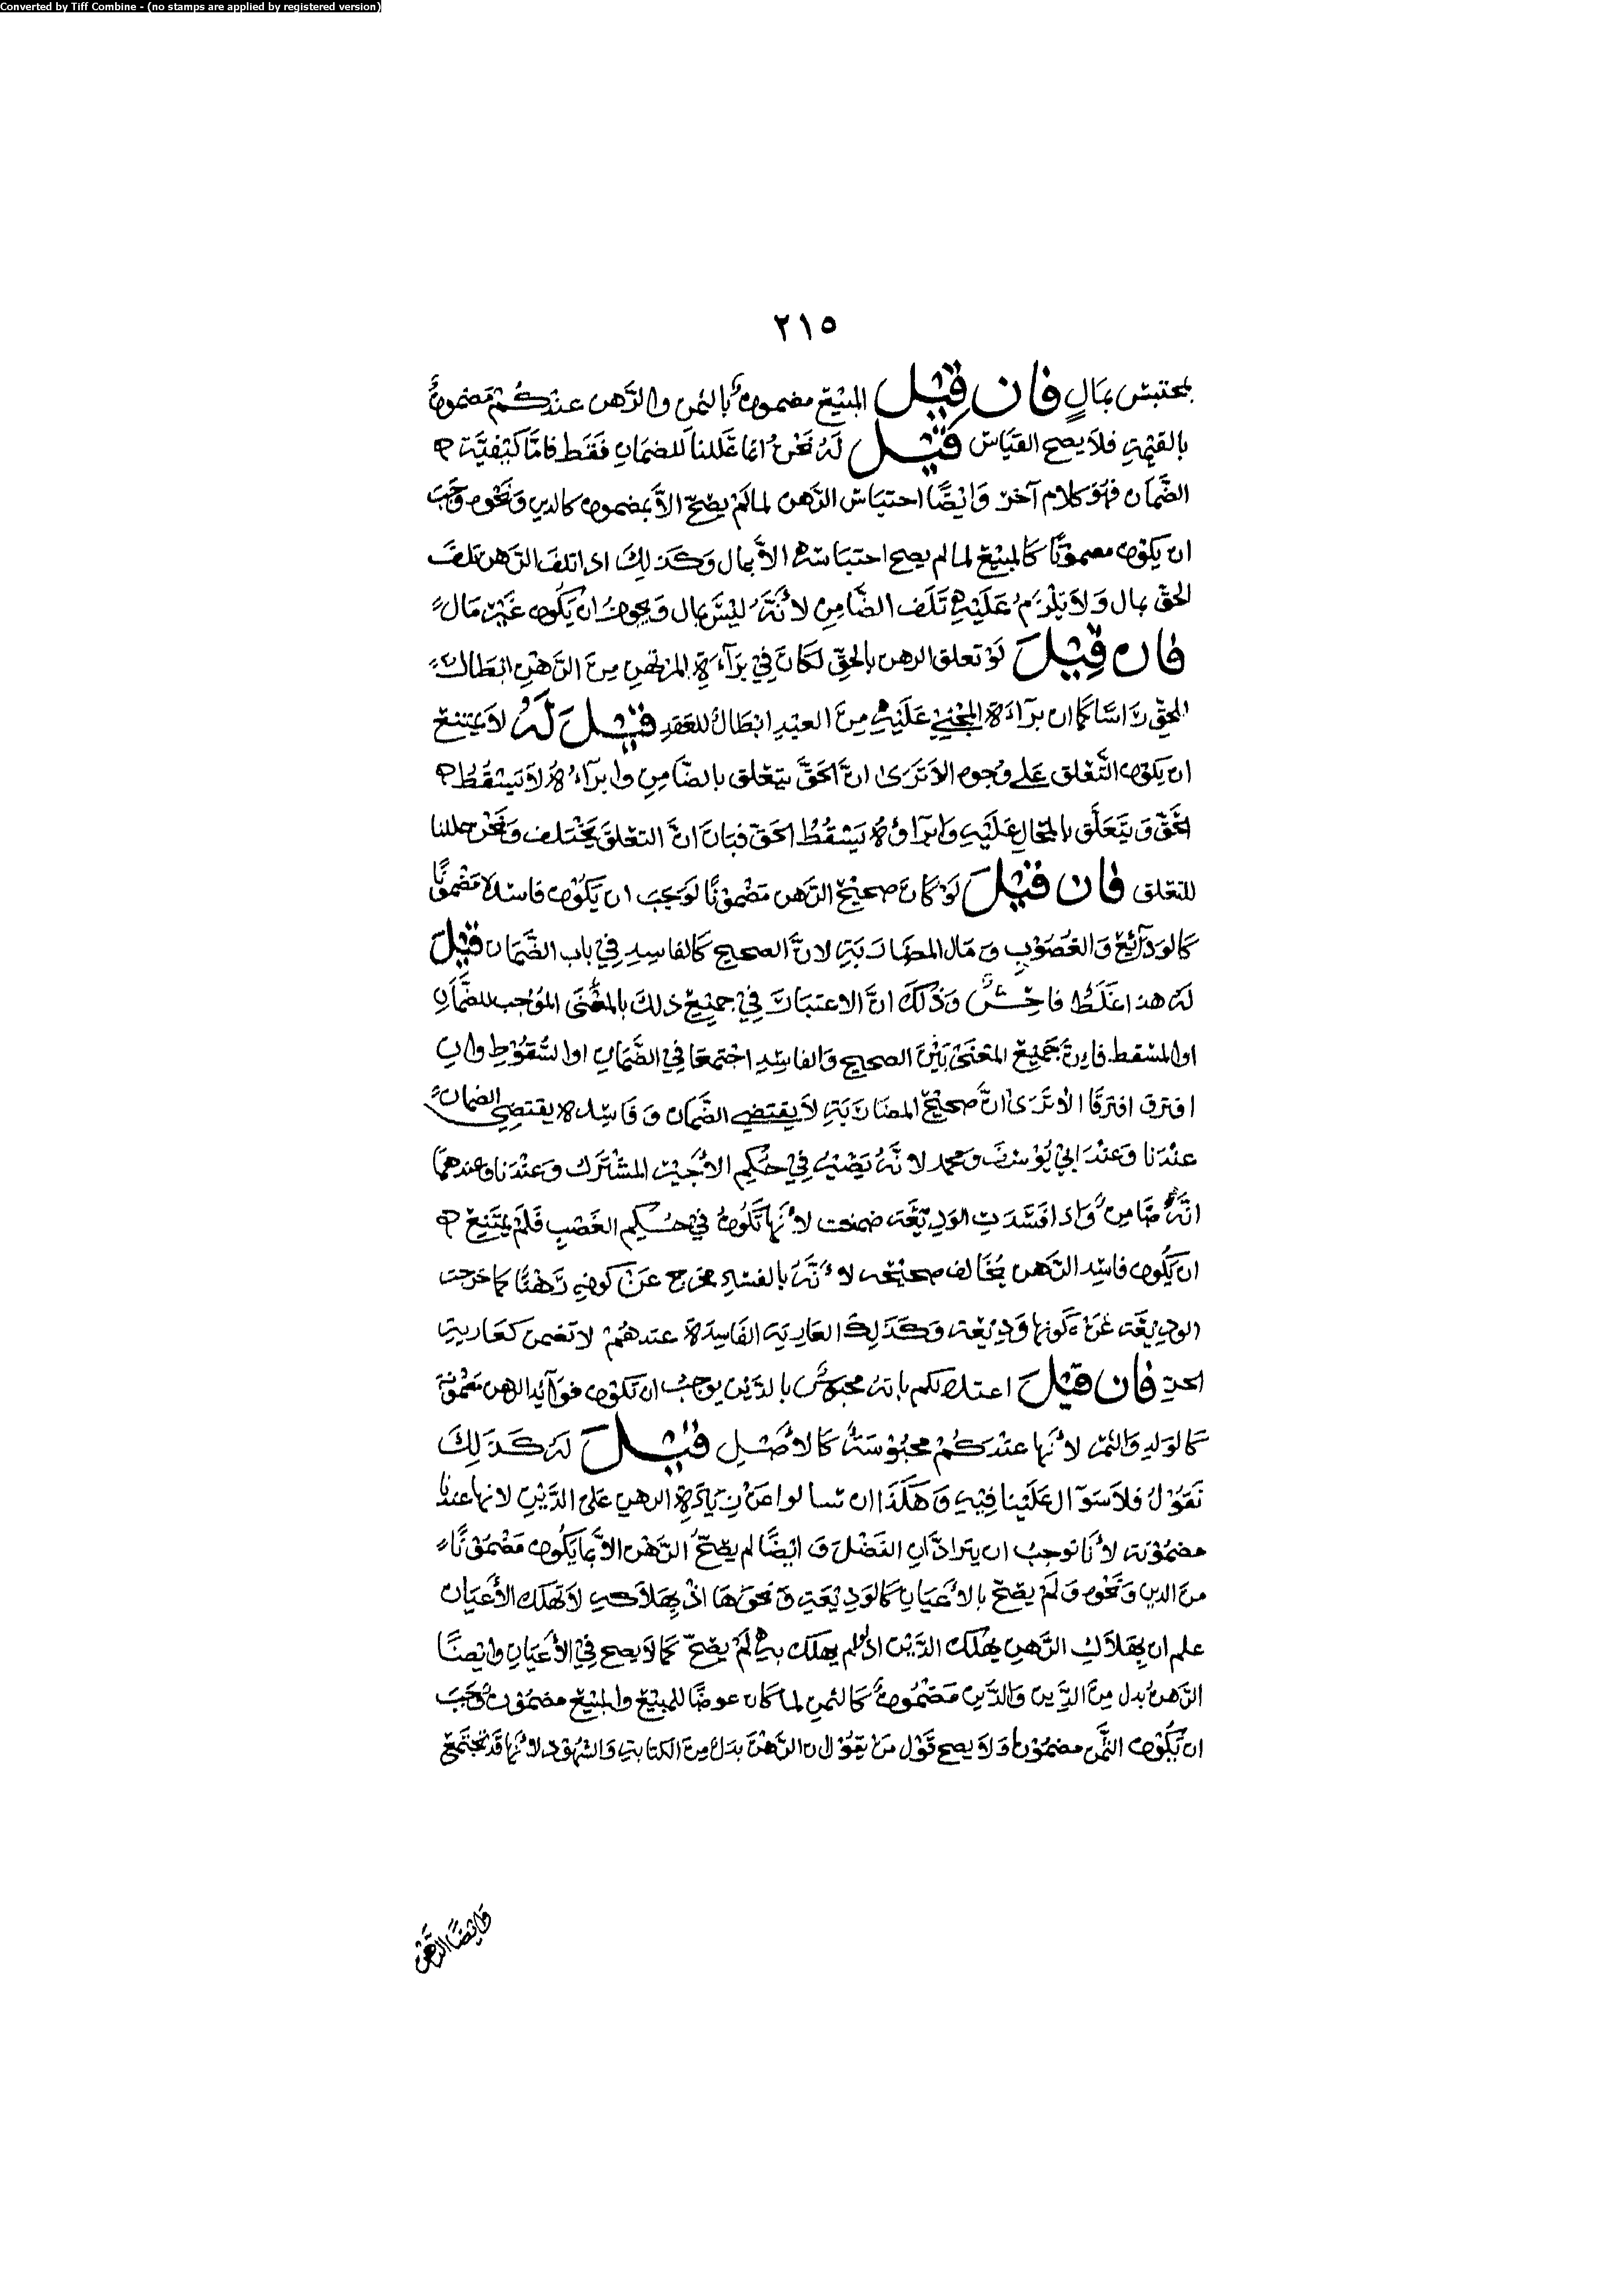 Converted by Tiff Combine - (no stamps are applied by registered version)
٢١٥
بمحتبس بمالٍ فان قيل المبيع مضمون بالثمن والرهن عندكم مضمون
بالقيمة فلا يصح القياس قيل له نحن انما عللنا للضمان فقط فامّا كيفيّة
الضّمان فهو كلام آخر وايضًا احتباس الرهن لما لم يصحّ الاّ بمضمون كالدين ونحوه وجب
ان يكون مضمونًا كالمبيع لما لم يصح احتباسه الاّ بمال وكذلك اذا تلف الرهن تلف
الحقّ بمال ولا يلزم عليه تلف الضّامن لأنّه ليس بمال ويجوز ان يكون غير مال
فان قيل لو تعلق الرهن بالحقّ لكان في برآءة المرتهن من الرّهن ابطال
الحقّ رأسًا كما ان برآءة المجني عليه من العبد ابطال للعقد قيل له لا يمتنع
ان يكون التّعلق على وجوه الا ترى انّ الحقّ يتعلق بالضّامن وابرآءه لا يسقط
الحقّ ويتعلّق بالمحال عليه وابرآؤه يسقط الحق فبان انّ التعلق يختلف ونحن عللنا
للتعلق فان قيل لو كان صحيح الرّهن مضمونًا لوجب ان يكون فاسده مضمونًا
كالودآئع والغصوب ومال المضاربة لانّ الصحيح كالفاسد في باب الضّمان قيل
له هذا غلط فاحش وذلك انّ الاعتبار في جميع ذلك بالمعنى الموجب للضّمان
او المسقط فان جميع المعنى بين الصحيح والفاسد اجتمعا في الضّمان او السّقوط وان
افترق افترقا الا ترى انّ صحيح المضاربة لا يقتضي الضّمان وفاسده لا يقتضي الضمان
عندنا وعند ابي يوسف ومحمد لانّه يصير في حكم الأجير المشترك وعندنا وعندهما
انّه ضامن واذا فسدت الوديعة ضمنت لأنها تكون في حكم الغصب فلم يمتنع
ان يكون فاسد الرّهن يخالف صحيحه لأنّه بالفساد خرج عن كونه رهنًا كما خرجت
الوديعة عن كونها وديعة وكذلك العارية الفاسدة عندهم لا تضمن كعارية
الحرّ فان قيل اعتلالكم بانه محبوس بالدّين يوجب ان تكون فوآئد الرهن مضمونة
كالولد والثمر لأنها عندكم محبوسة كالأصل قيل له كذلك
نقول فلا سوآل علينا فيه وهكذا ان سالوا عن زيادة الرهن على الدّين لانها عندنا
مضمونة لأنا نوجب ان يترادّان الفضل وايضًا لم يصحّ الرّهن الاّ بما يكون مضمونًا
من الدين ونحوه ولم يصحّ بالأعيان كالوديعة ونحوها اذ بهلاكه لا تهلك الأعيان
علم ان بهلاك الرّهن يهلك الدّين اذ لو لم يهلك به لم يصحّ كما لا يصح في الأعيان وايضًا
الرّهن بدل من الدّين والدّين مضمون كالثمن لما كان عوضًا للمبيع والمبيع مضمون وجب
ان يكون الثّمن مضمونًا ولا يصح قول من يقول ان الرّهن بدل من الكتابة والشهود لأنها قد تجتمع
وايضًا الرّهن